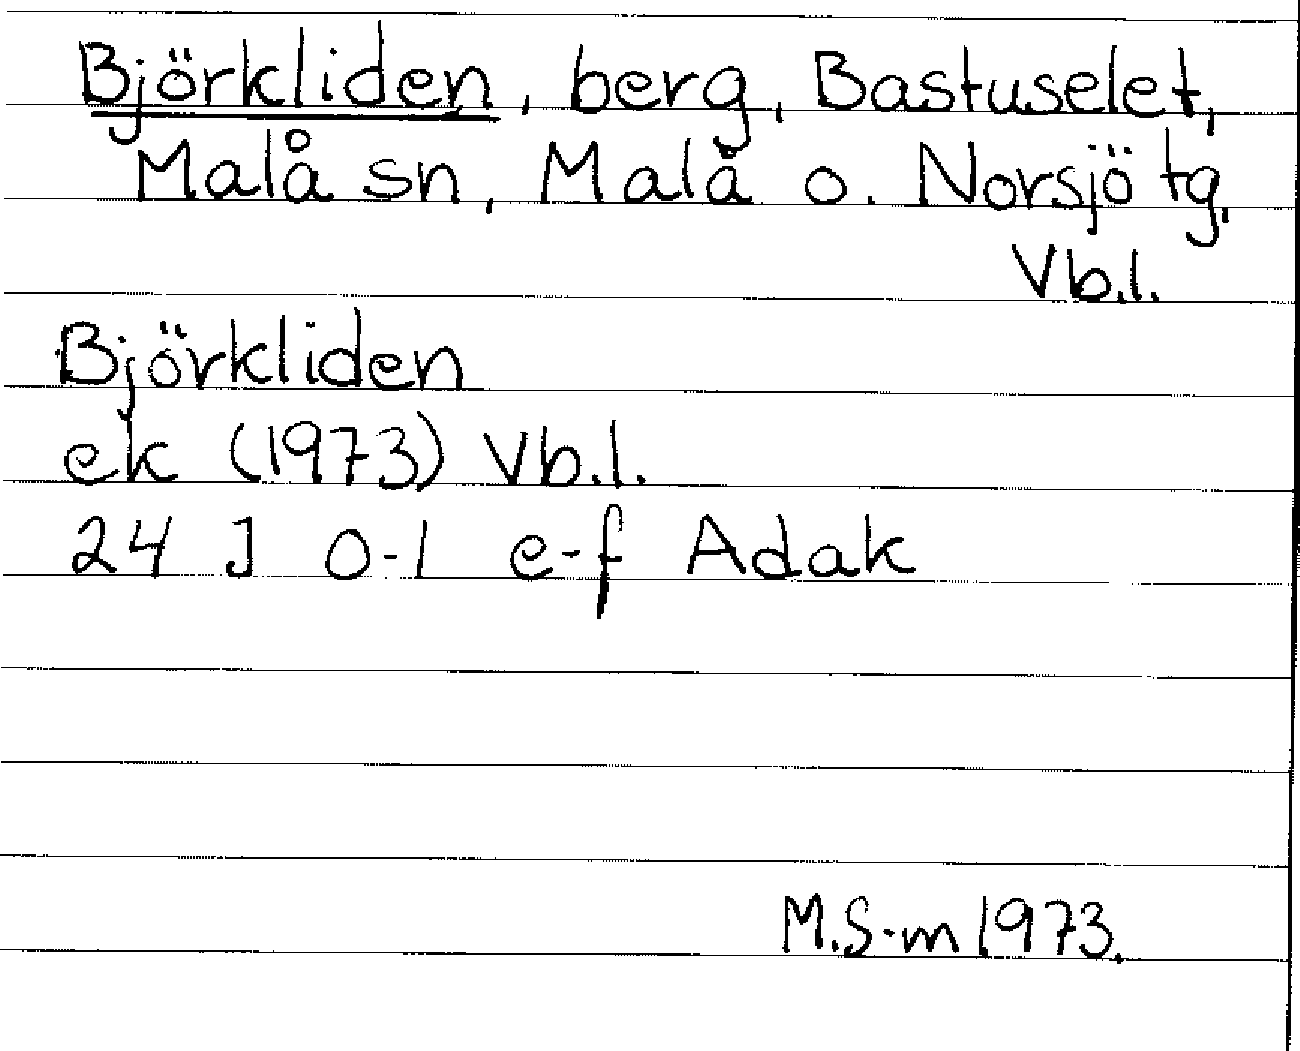 Björkliden, berg, Bastuselet,
Malå sn, Malå o. Norsjö tg,
Vb.l.
Björkliden
ek (1973) Vb.l.
24 J 0-1 e-f Adak
M.S-m 1973.